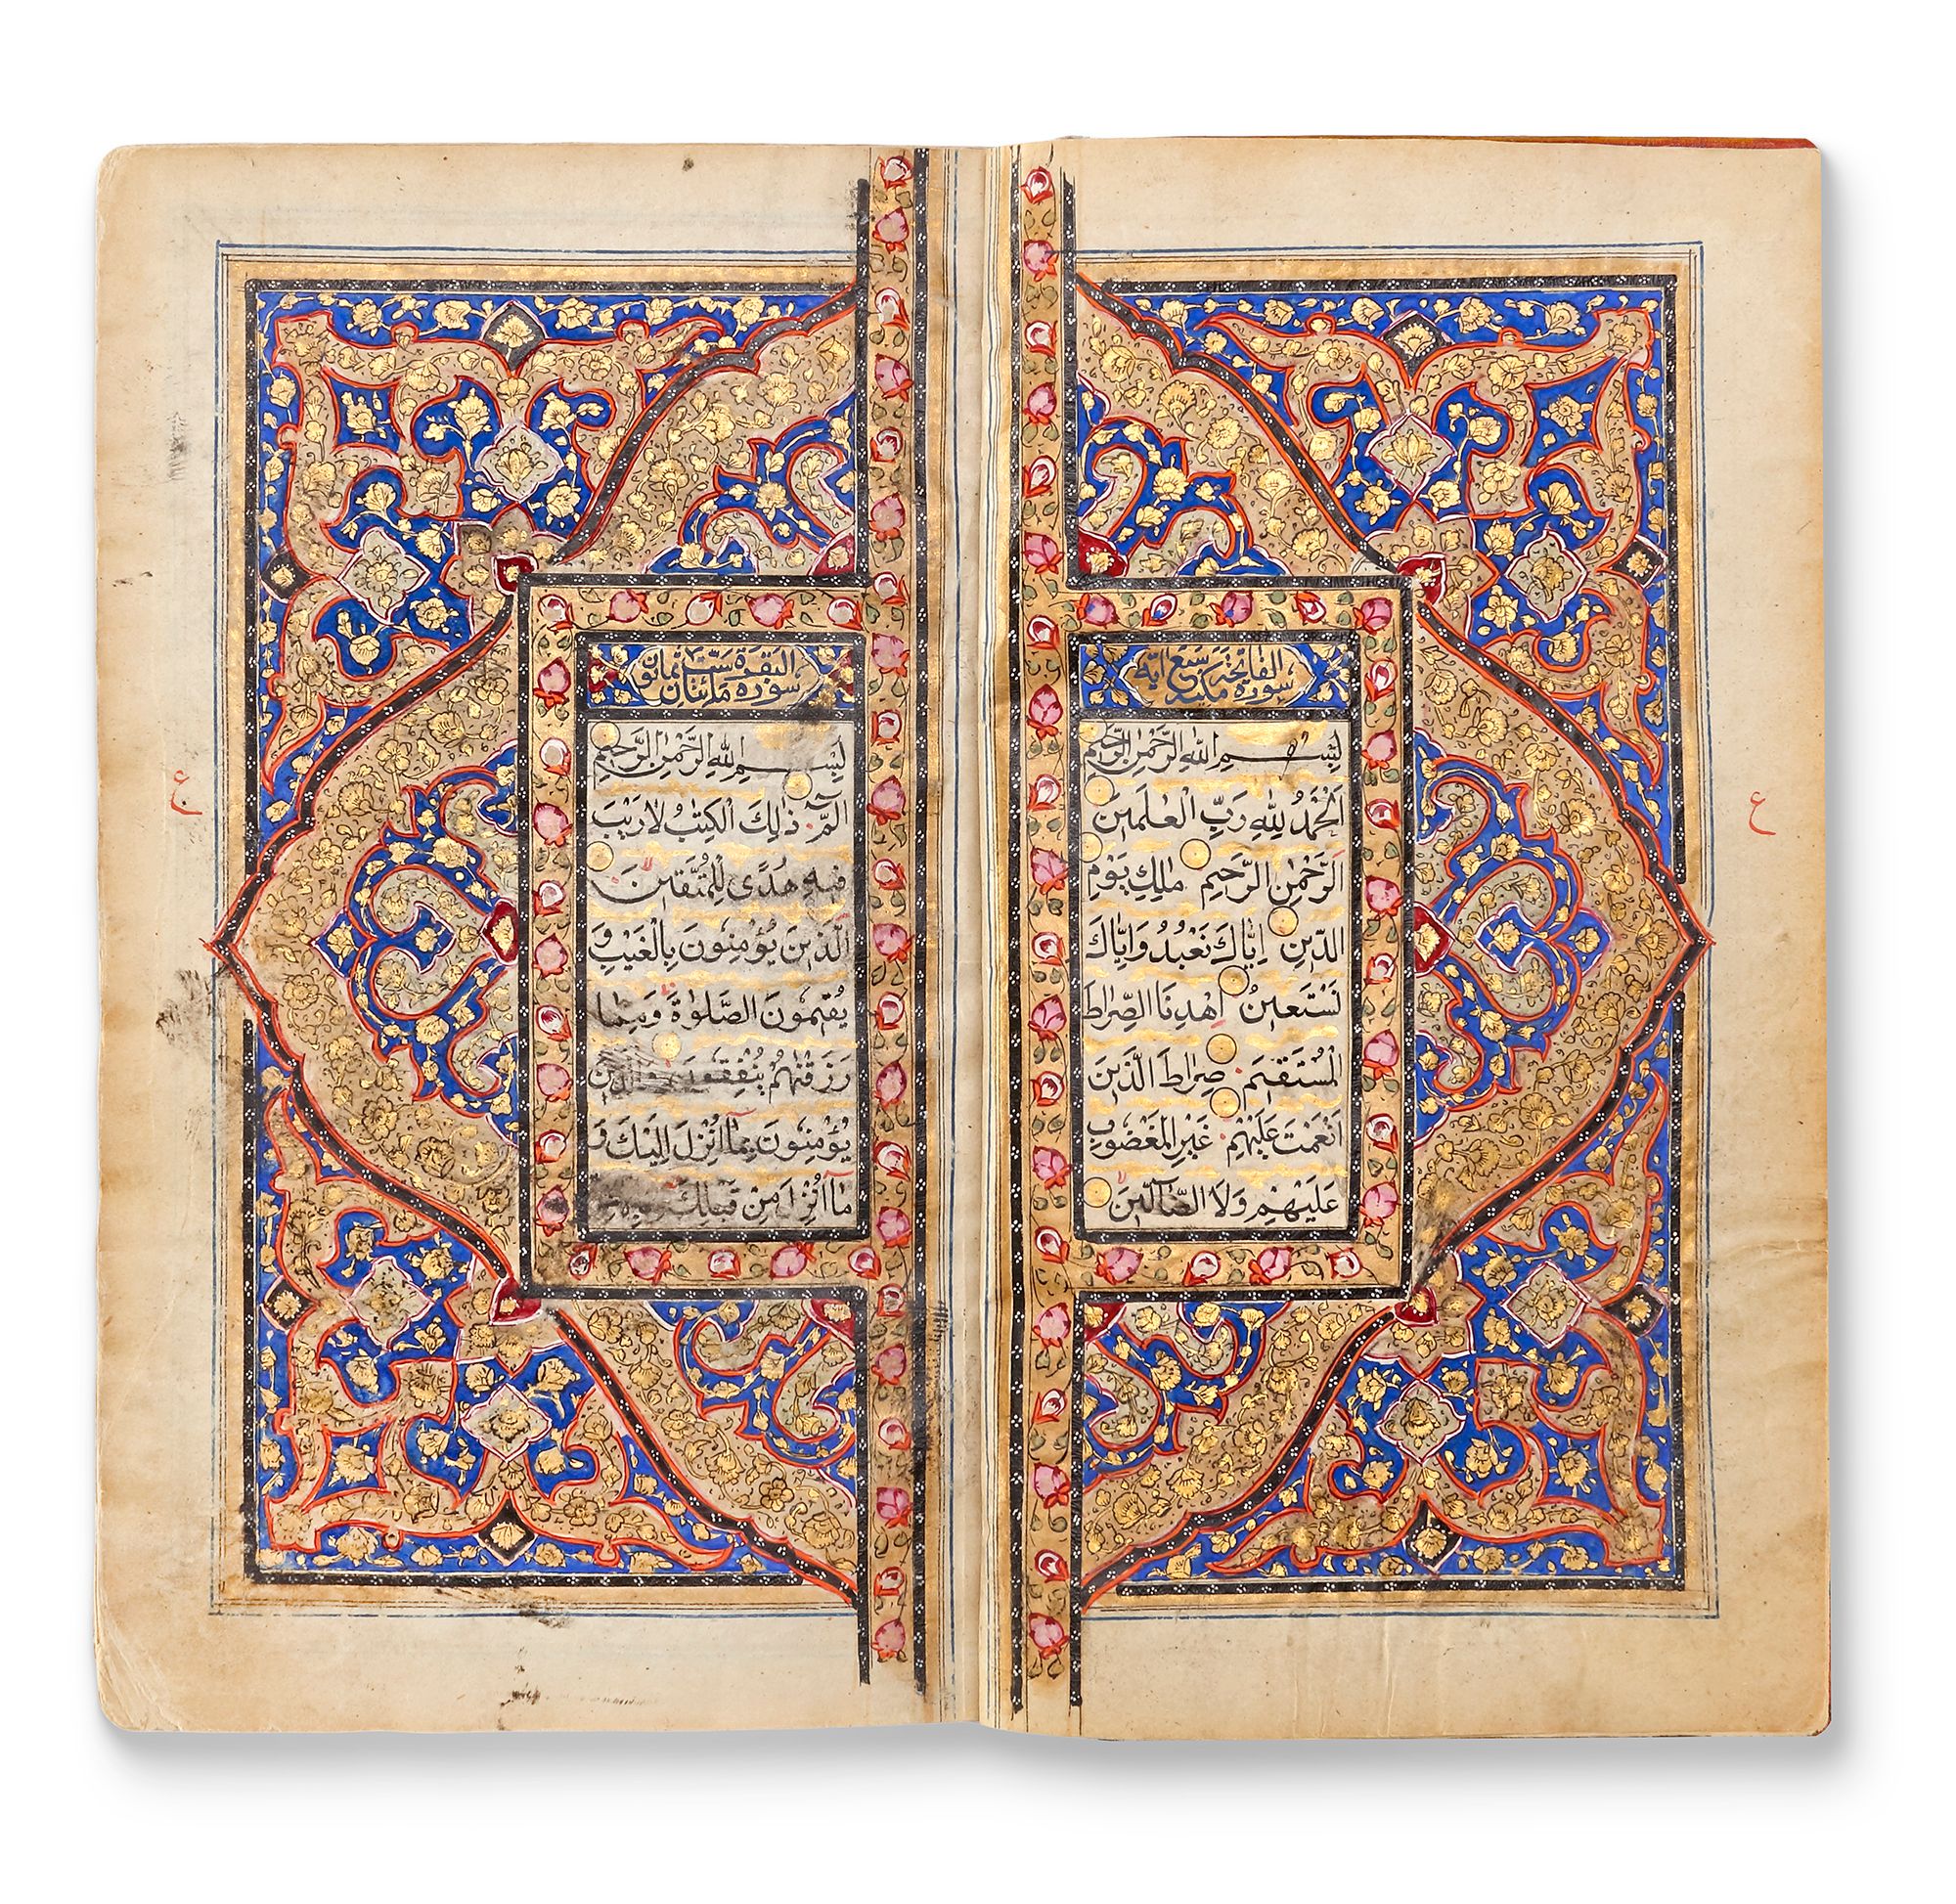 سورة الفاتحة سبع آية مكية
بِسْمِ اللهِ الرَّحْمٰنِ الرَّحِيمِ
اَلْحَمْدُ لِلّٰهِ رَبِّ الْعٰلَمِينَ
الرَّحْمٰنِ الرَّحِيمِ مٰلِكِ يَوْمِ
الدِّينِ اِيَّاكَ نَعْبُدُ وَاِيَّاكَ
نَسْتَعِينُ اِهْدِنَا الصِّرَاطَ
الْمُسْتَقِيمَ صِرَاطَ الَّذِينَ
اَنْعَمْتَ عَلَيْهِمْ غَيْرِ الْمَغْضُوبِ
عَلَيْهِمْ وَلَا الضَّآلِّينَ
ع
سوره البقرة مائتان ست ثمانون
بِسْمِ اللهِ الرَّحْمٰنِ الرَّحِيمِ
الٓمّٓ ذٰلِكَ الْكِتٰبُ لَا رَيْبَ
فِيهِ هُدًى لِلْمُتَّقِينَ
الَّذِينَ يُؤْمِنُونَ بِالْغَيْبِ وَ
يُقِيمُونَ الصَّلٰوةَ وَمِمَّا
رَزَقْنٰهُمْ يُنْفِقُونَ وَالَّذِينَ
يُؤْمِنُونَ بِمَآ اُنْزِلَ اِلَيْكَ وَ
مَآ اُنْزِلَ مِنْ قَبْلِكَ
ع